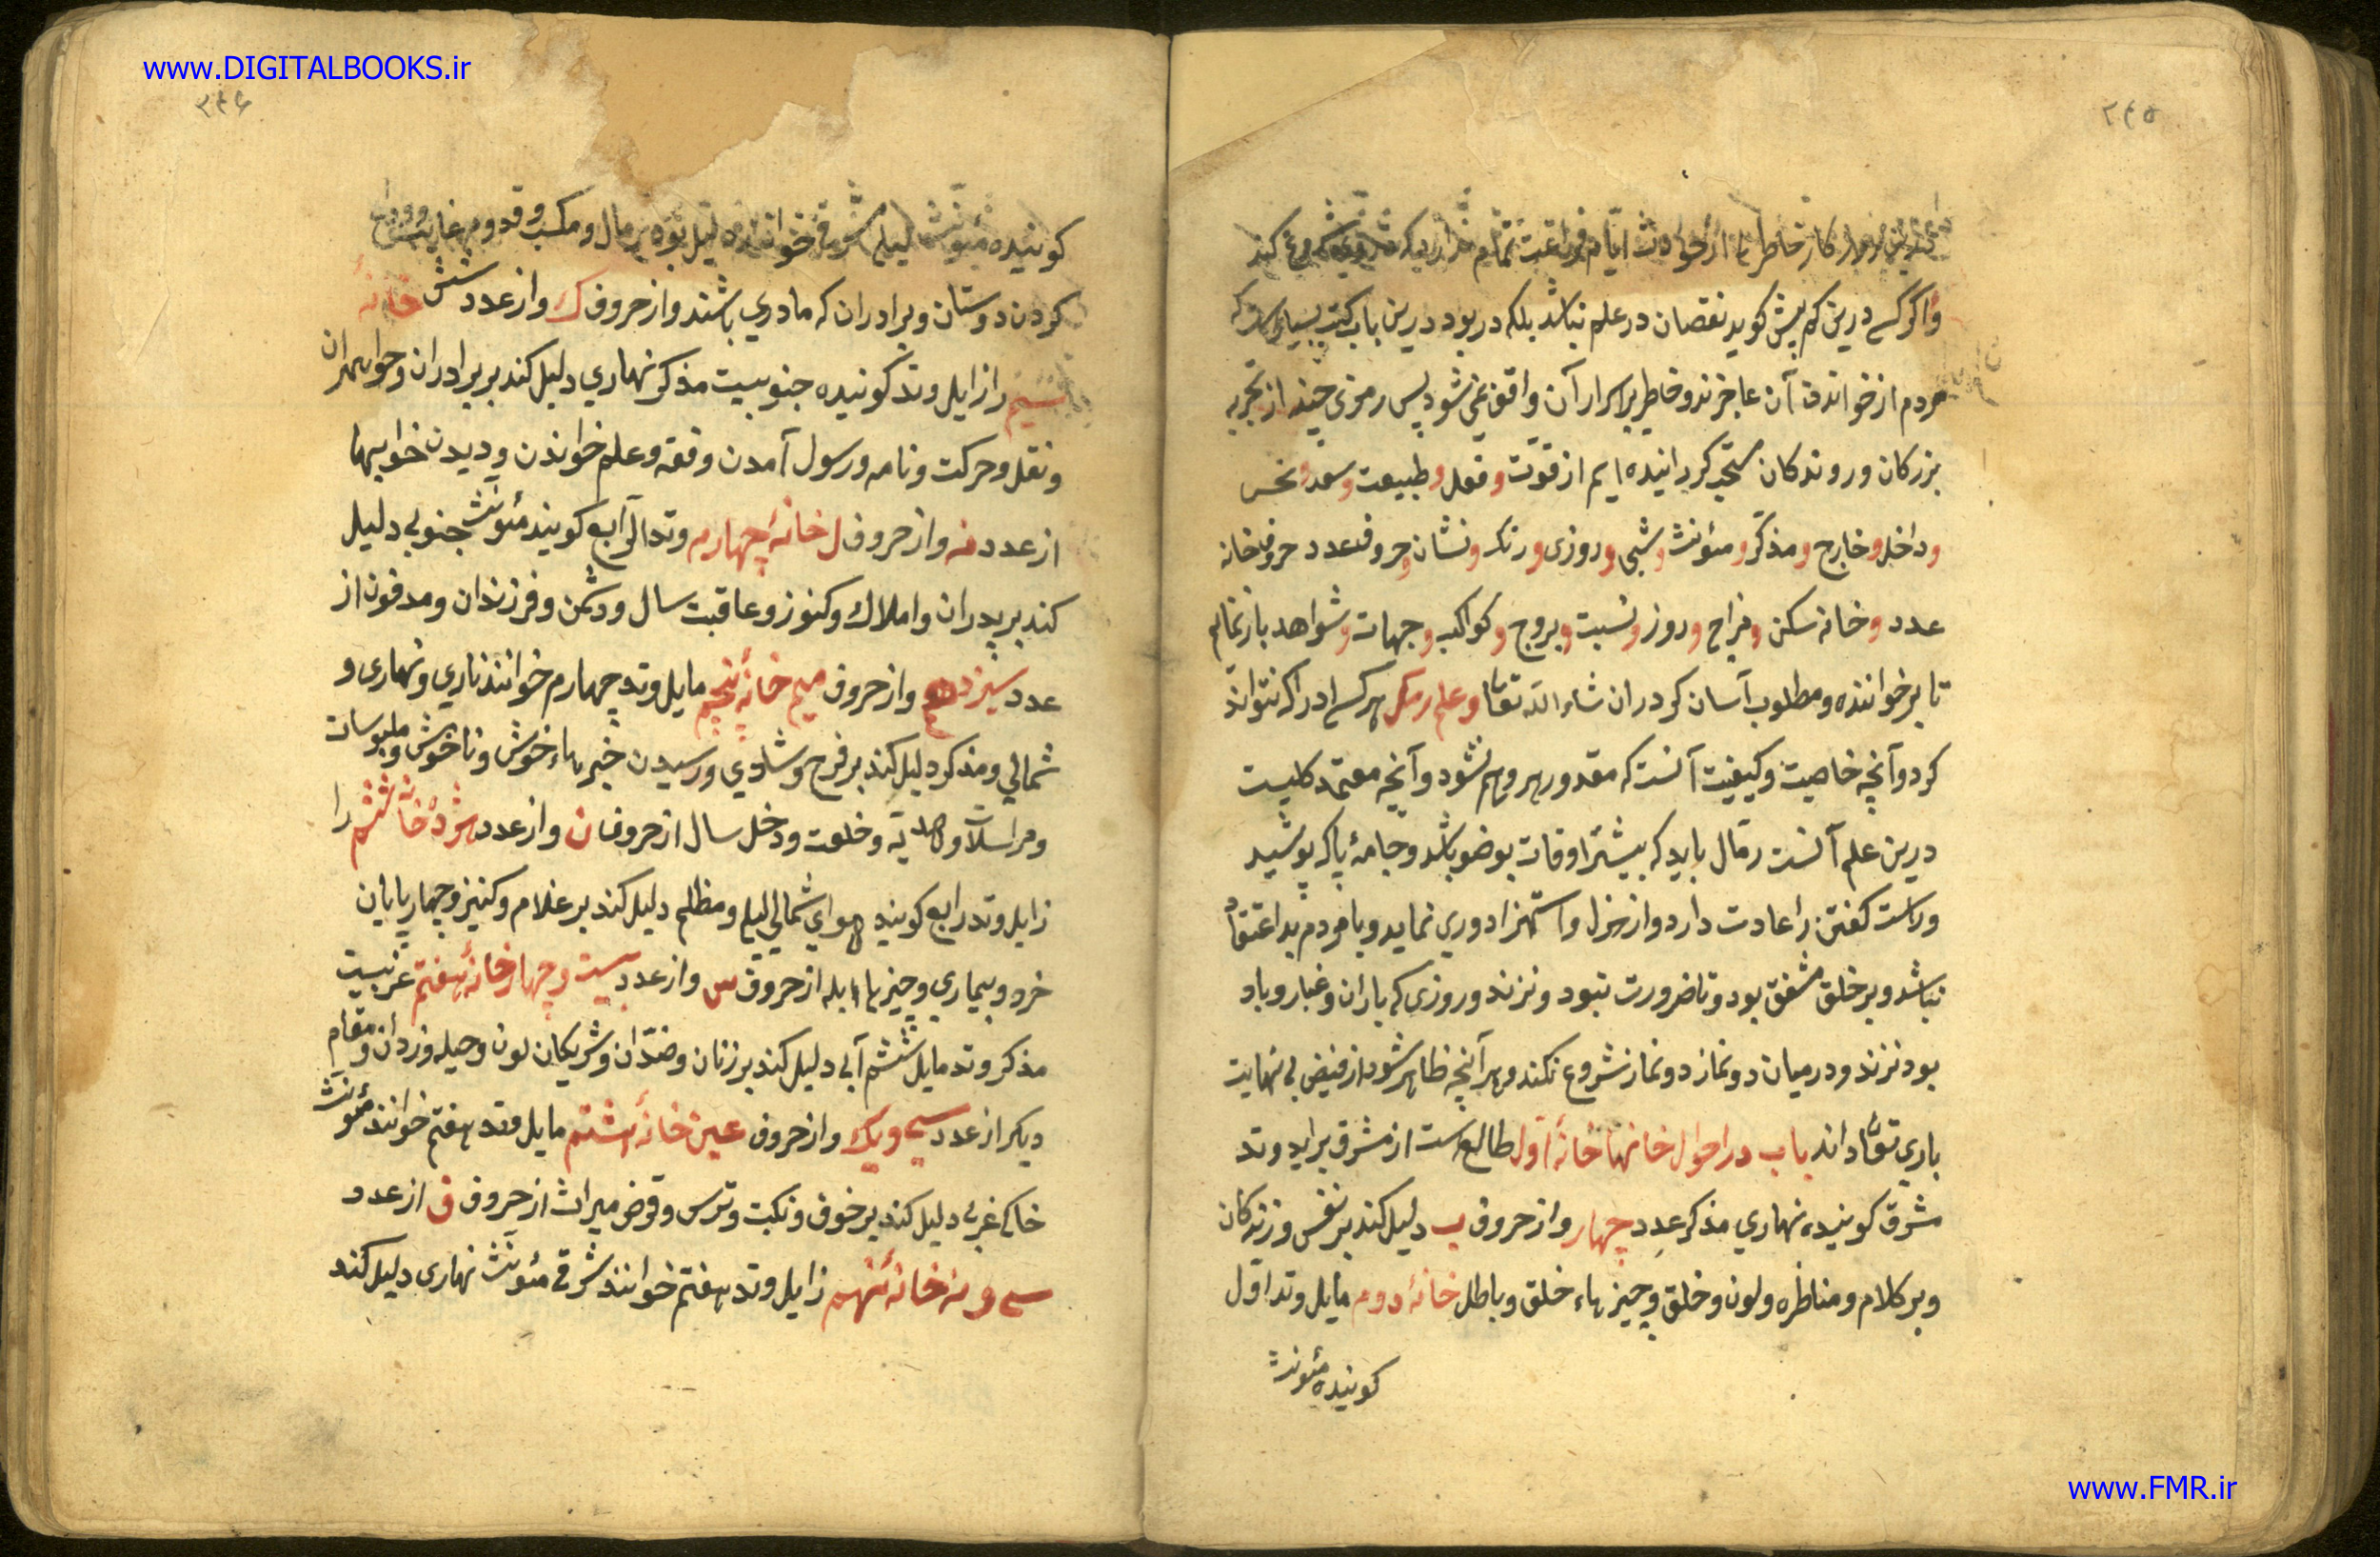 www.DIGITALBOOKS.ir
۲۴۵
خاطر از حوادث ایام فراغت تمام ندارد که شروع کند
و اگر کسی درین کم بیش کوید نقصان در علم نباشد بلکه در بود درین باب کتب بسیار است که
مردم از خواندن آن عاجزند و خاطر بر اسرار آن واقف نمی شود پس رمزی چند از تجربه
بزرکان و روندکان کردانیده ایم از قوت و فعل و طبیعت و سعد و نحس
و داخل و خارج و مذکر و مئونث و شبی و روزی و رنک و نشان و حروف عدد حروف خانه
عدد و خانه سکن و مزاج و روز و نسبت و بروج و کواکب و جهات و شواهد باز نمائیم
تا بر خواننده و مطلوب آسان کردد ان شاء الله تعالی و علم رمل هر کسی ادراک نتواند
کرد و آنچه خاصیت و کیفیت آنست که مقدور هر وهم نشود و آنچه معتمد کلیست
درین علم آنست رمال باید که بیشتر اوقات بوضو باشد و جامهٔ پاک پوشید
و راست کفتن را عادت دارد و از هزل و استهزا دوری نماید و با مردم بد اعتقاد
نباشد و بر خلق مشفق بود و تا ضرورت نبود و نزند و روزی که باران و غبار و باد
بود نزند و در میان دو نماز دو نماز شروع نکند و هر آنچه ظاهر شود از فیض بی نهایت
باری تعالی داند باب در احوال خانها خانهٔ اول طالع است از مشرق براید وتد
مشرق کویند نهاری مذکر عدد چهار و از حروف ب دلیل کند بر نفس و زندکان
و بر کلام و مناظره و لون و خلق و چیزهاء خلق و باطل خانهٔ دوم مایل وتد اول
کوینده مئونث
۲۴۶
کوینده مئونث لیلی شرقی خوانند دلیل بود بر مال و مکسب و قدوم غایب و وداع
کردن دوستان و برادران که مادری باشند و از حروف ک و از عدد شش خانهٔ
سیم را زایل وتد کوینده جنوبیست مذکر نهاری دلیل کند بر برادران و خواهران
و نقل و حرکت و نامه و رسول آمدن و فقه و علم خواندن و دیدن خوابها
از عدد نه و از حروف ل خانهٔ چهارم وتد الرابع کویند مئونث جنوبی دلیل
کند بر پدران و املاک و کنوز و عاقبت سال و دشمن و فرزندان و مدفون از
عدد سیزده و از حروف میم خانهٔ پنجم مایل وتد چهارم خوانند ناری و نهاری و
شمالی و مذکر دلیل کند بر فرح و شادی و رسیدن خبرهاء خوش و ناخوش و ملبوسات
و مراسلات و هدیه و خلعت و دخل سال از حروف ن و از عدد هژده خانهٔ ششم را
زایل وتد رابع کویند هوای شمالی لیلی و مظلم دلیل کند بر غلام و کنیز و چهارپایان
خرد و بیماری و چیزهاء ابله از حروف س و از عدد بیست و چهار خانهٔ هفتم غربیست
مذکر وتد مایل ششم آبی دلیل کند بر زنان و ضدان و شریکان لون و حیله و زدان و مقام
دیکر از عدد سی و یک و از حروف عین خانهٔ هشتم مایل وتد هفتم خوانند مئونث
خاکی غربی دلیل کند بر خوف و نکبت و ترس و قرض میراث از حروف ف از عدد
سی و نه خانهٔ نهم زایل وتد هفتم خوانند شرقی مئونث نهاری دلیل کند
www.FMR.ir